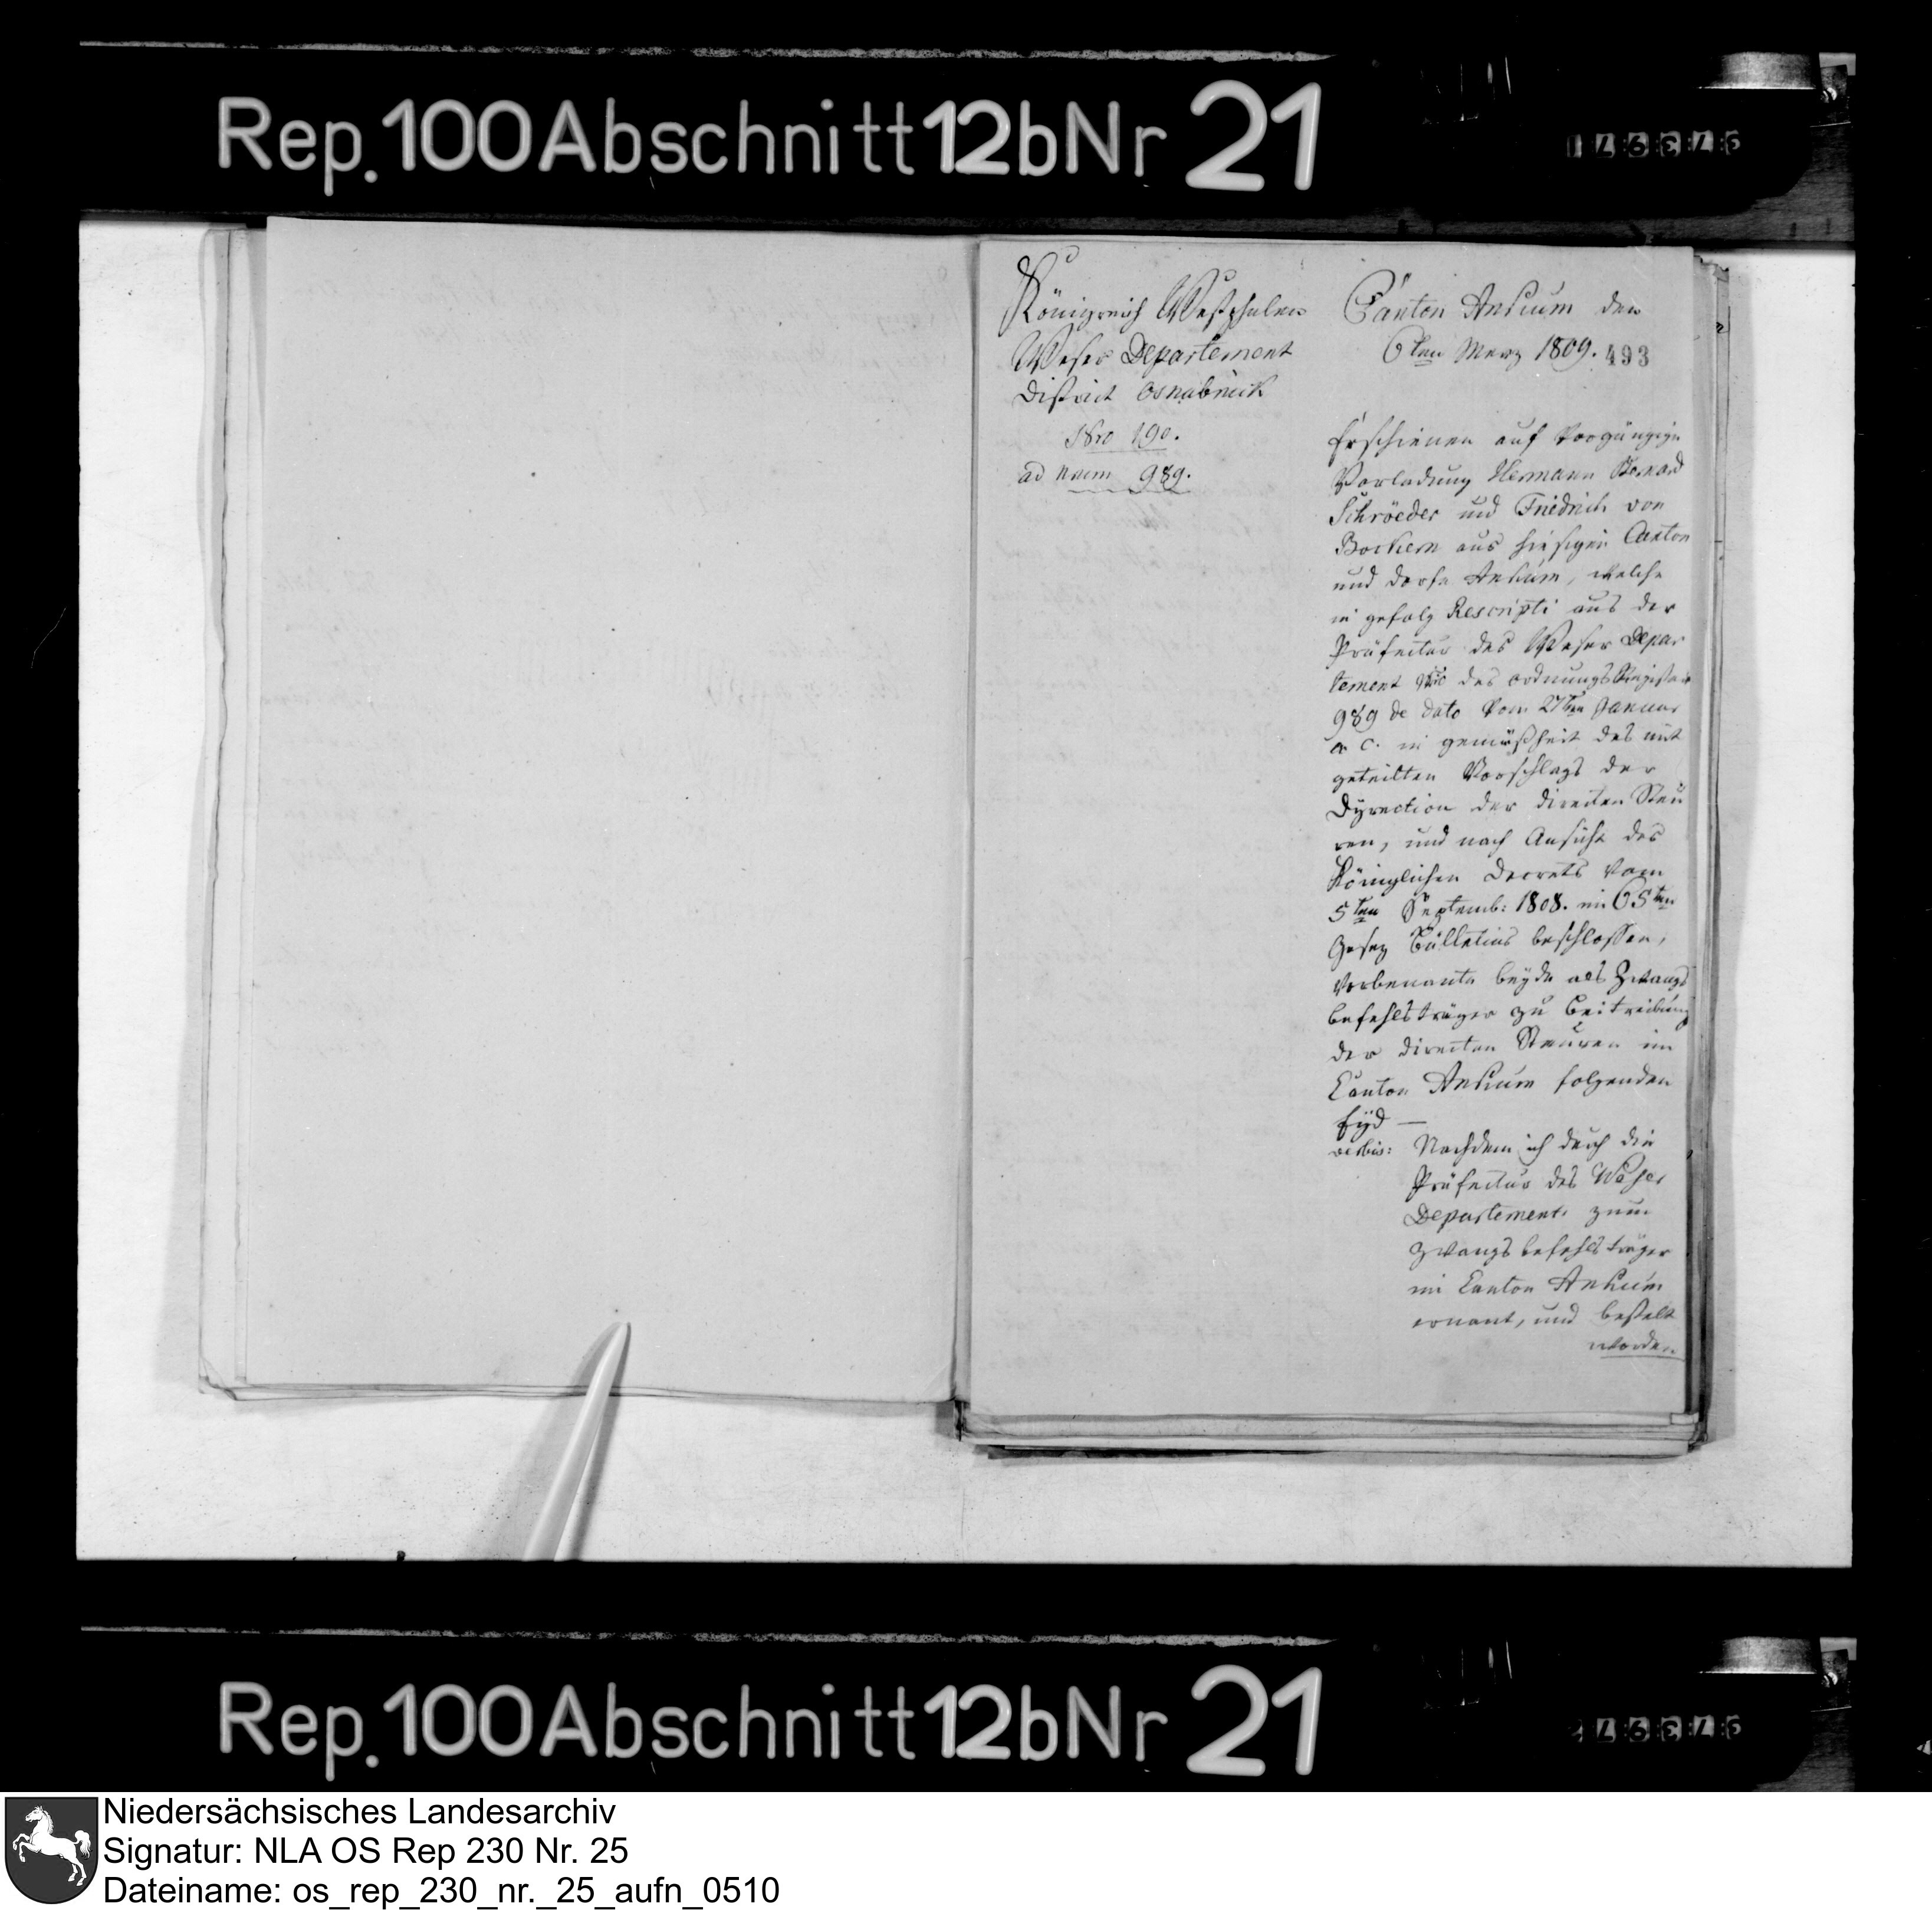 Rep. 100 Abschnitt 12b Nr 21
Königreich Westphalen
Weser Departement
District Osnabrück
Nro 190.
ad num 989.
Canton Ankum den
6ten Merz 1809.
493
Erschienen auf Vorgängige
Vorladung Hermann Bernard
Schröeder und Friedrich von
Bockern aus hiesigen Canton
und Dorfe Ankum, welche
in gefolg Rescripti aus der
Präfectur des Weser Depar
tement Nro des ordnungs Registers
989 de dato vom 27ten Januar
a c. in gemäßheit des mit
geteilten Vorschlags der
Dyrection der directen Steu
ren, und nach Ansicht des
Königlichen Decrets vom
5ten Septemb: 1808. im 65ten
Gesez Bülletins beschlossen,
Vorbenante beyde als Zwangs
befehlsträger zu Beitreibung
der directen Steuren im
Canton Ankum folgenden
Eyd —
verbis: Nachdem ich durch die
Präfectur des Weser
Departements zum
Zwangsbefehlsträger
im Canton Ankum
ernant, und bestelt
worden
Rep. 100 Abschnitt 12b Nr 21
Niedersächsisches Landesarchiv
Signatur: NLA OS Rep 230 Nr. 25
Dateiname: os_rep_230_nr._25_aufn_0510